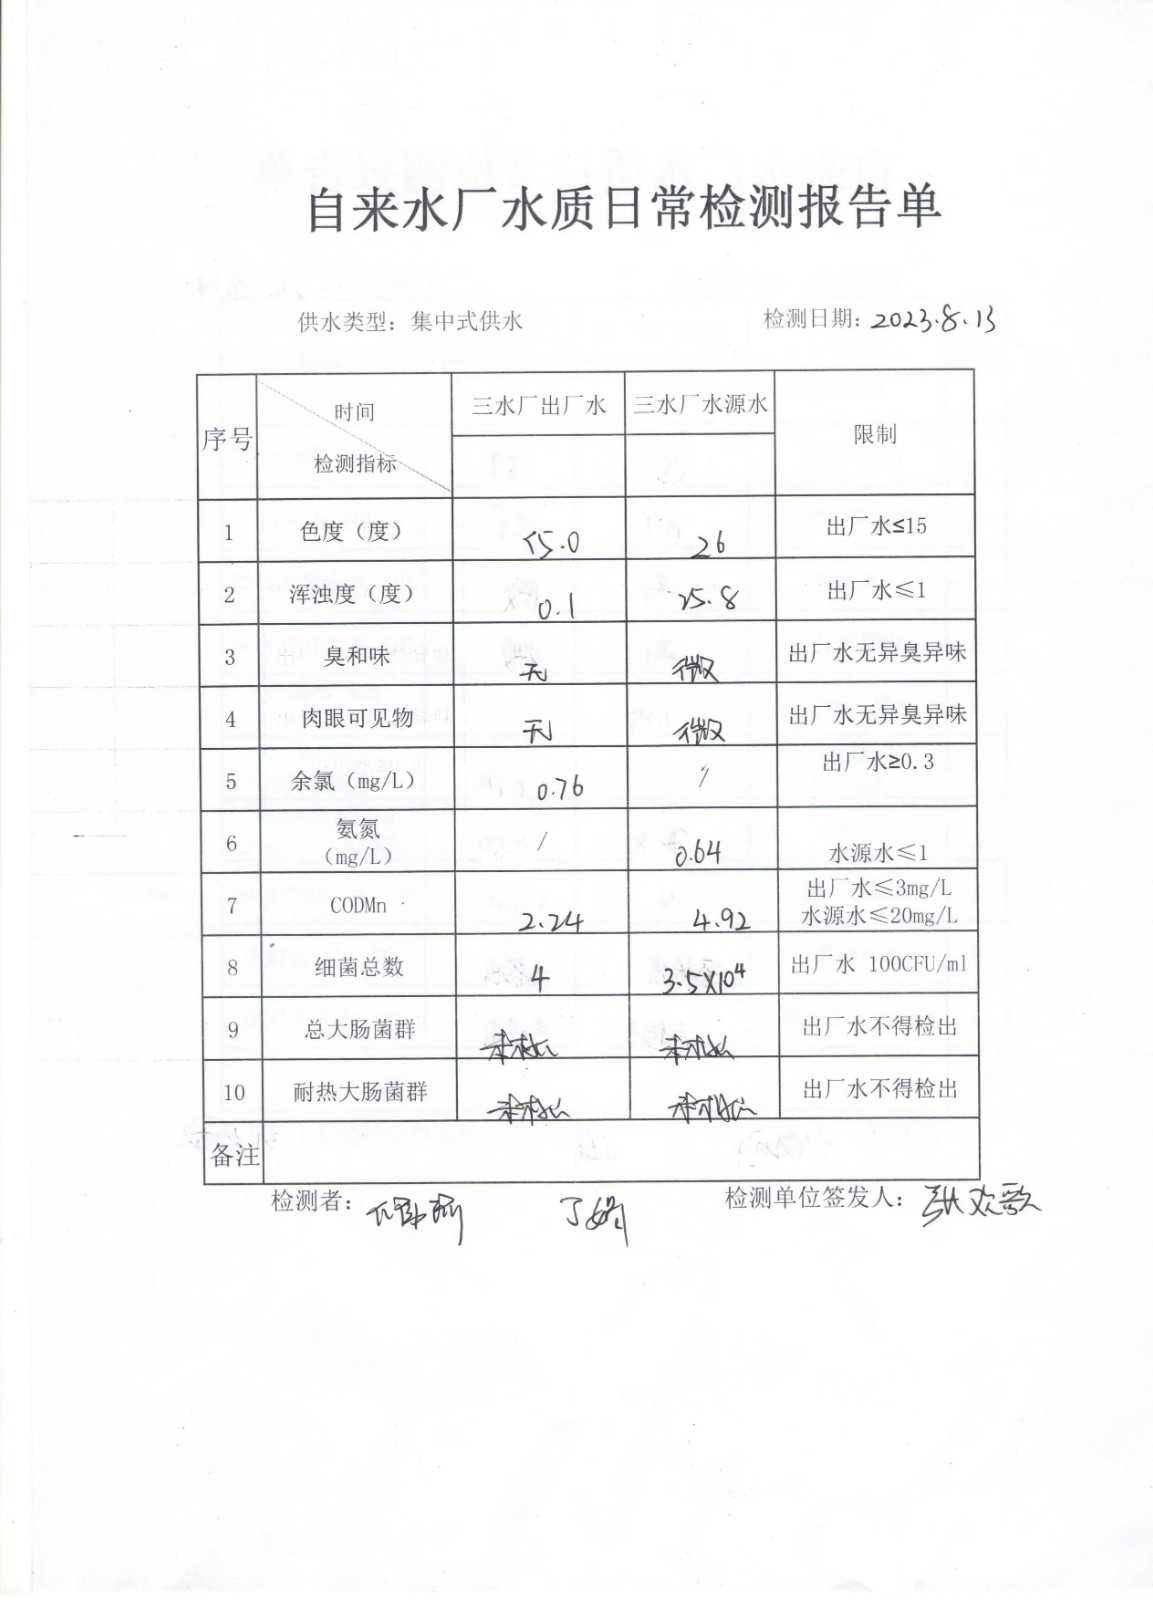 自来水厂水质日常检测报告单
供水类型：集中式供水 检测日期：2023.8.13
序号 时间 检测指标 三水厂出厂水 三水厂水源水 限制
1 色度（度） <5.0 26 出厂水≤15
2 浑浊度（度） 0.1 25.8 出厂水≤1
3 臭和味 无 微 出厂水无异臭异味
4 肉眼可见物 无 微 出厂水无异臭异味
5 余氯（mg/L） 0.76 / 出厂水≥0.3
6 氨氮（mg/L） / 0.64 水源水≤1
7 CODMn 2.24 4.92 出厂水≤3mg/L 水源水≤20mg/L
8 细菌总数 4 3.5×10⁴ 出厂水 100CFU/ml
9 总大肠菌群 未检出 未检出 出厂水不得检出
10 耐热大肠菌群 未检出 未检出 出厂水不得检出
备注
检测者： 丁娟 检测单位签发人：张欢歌